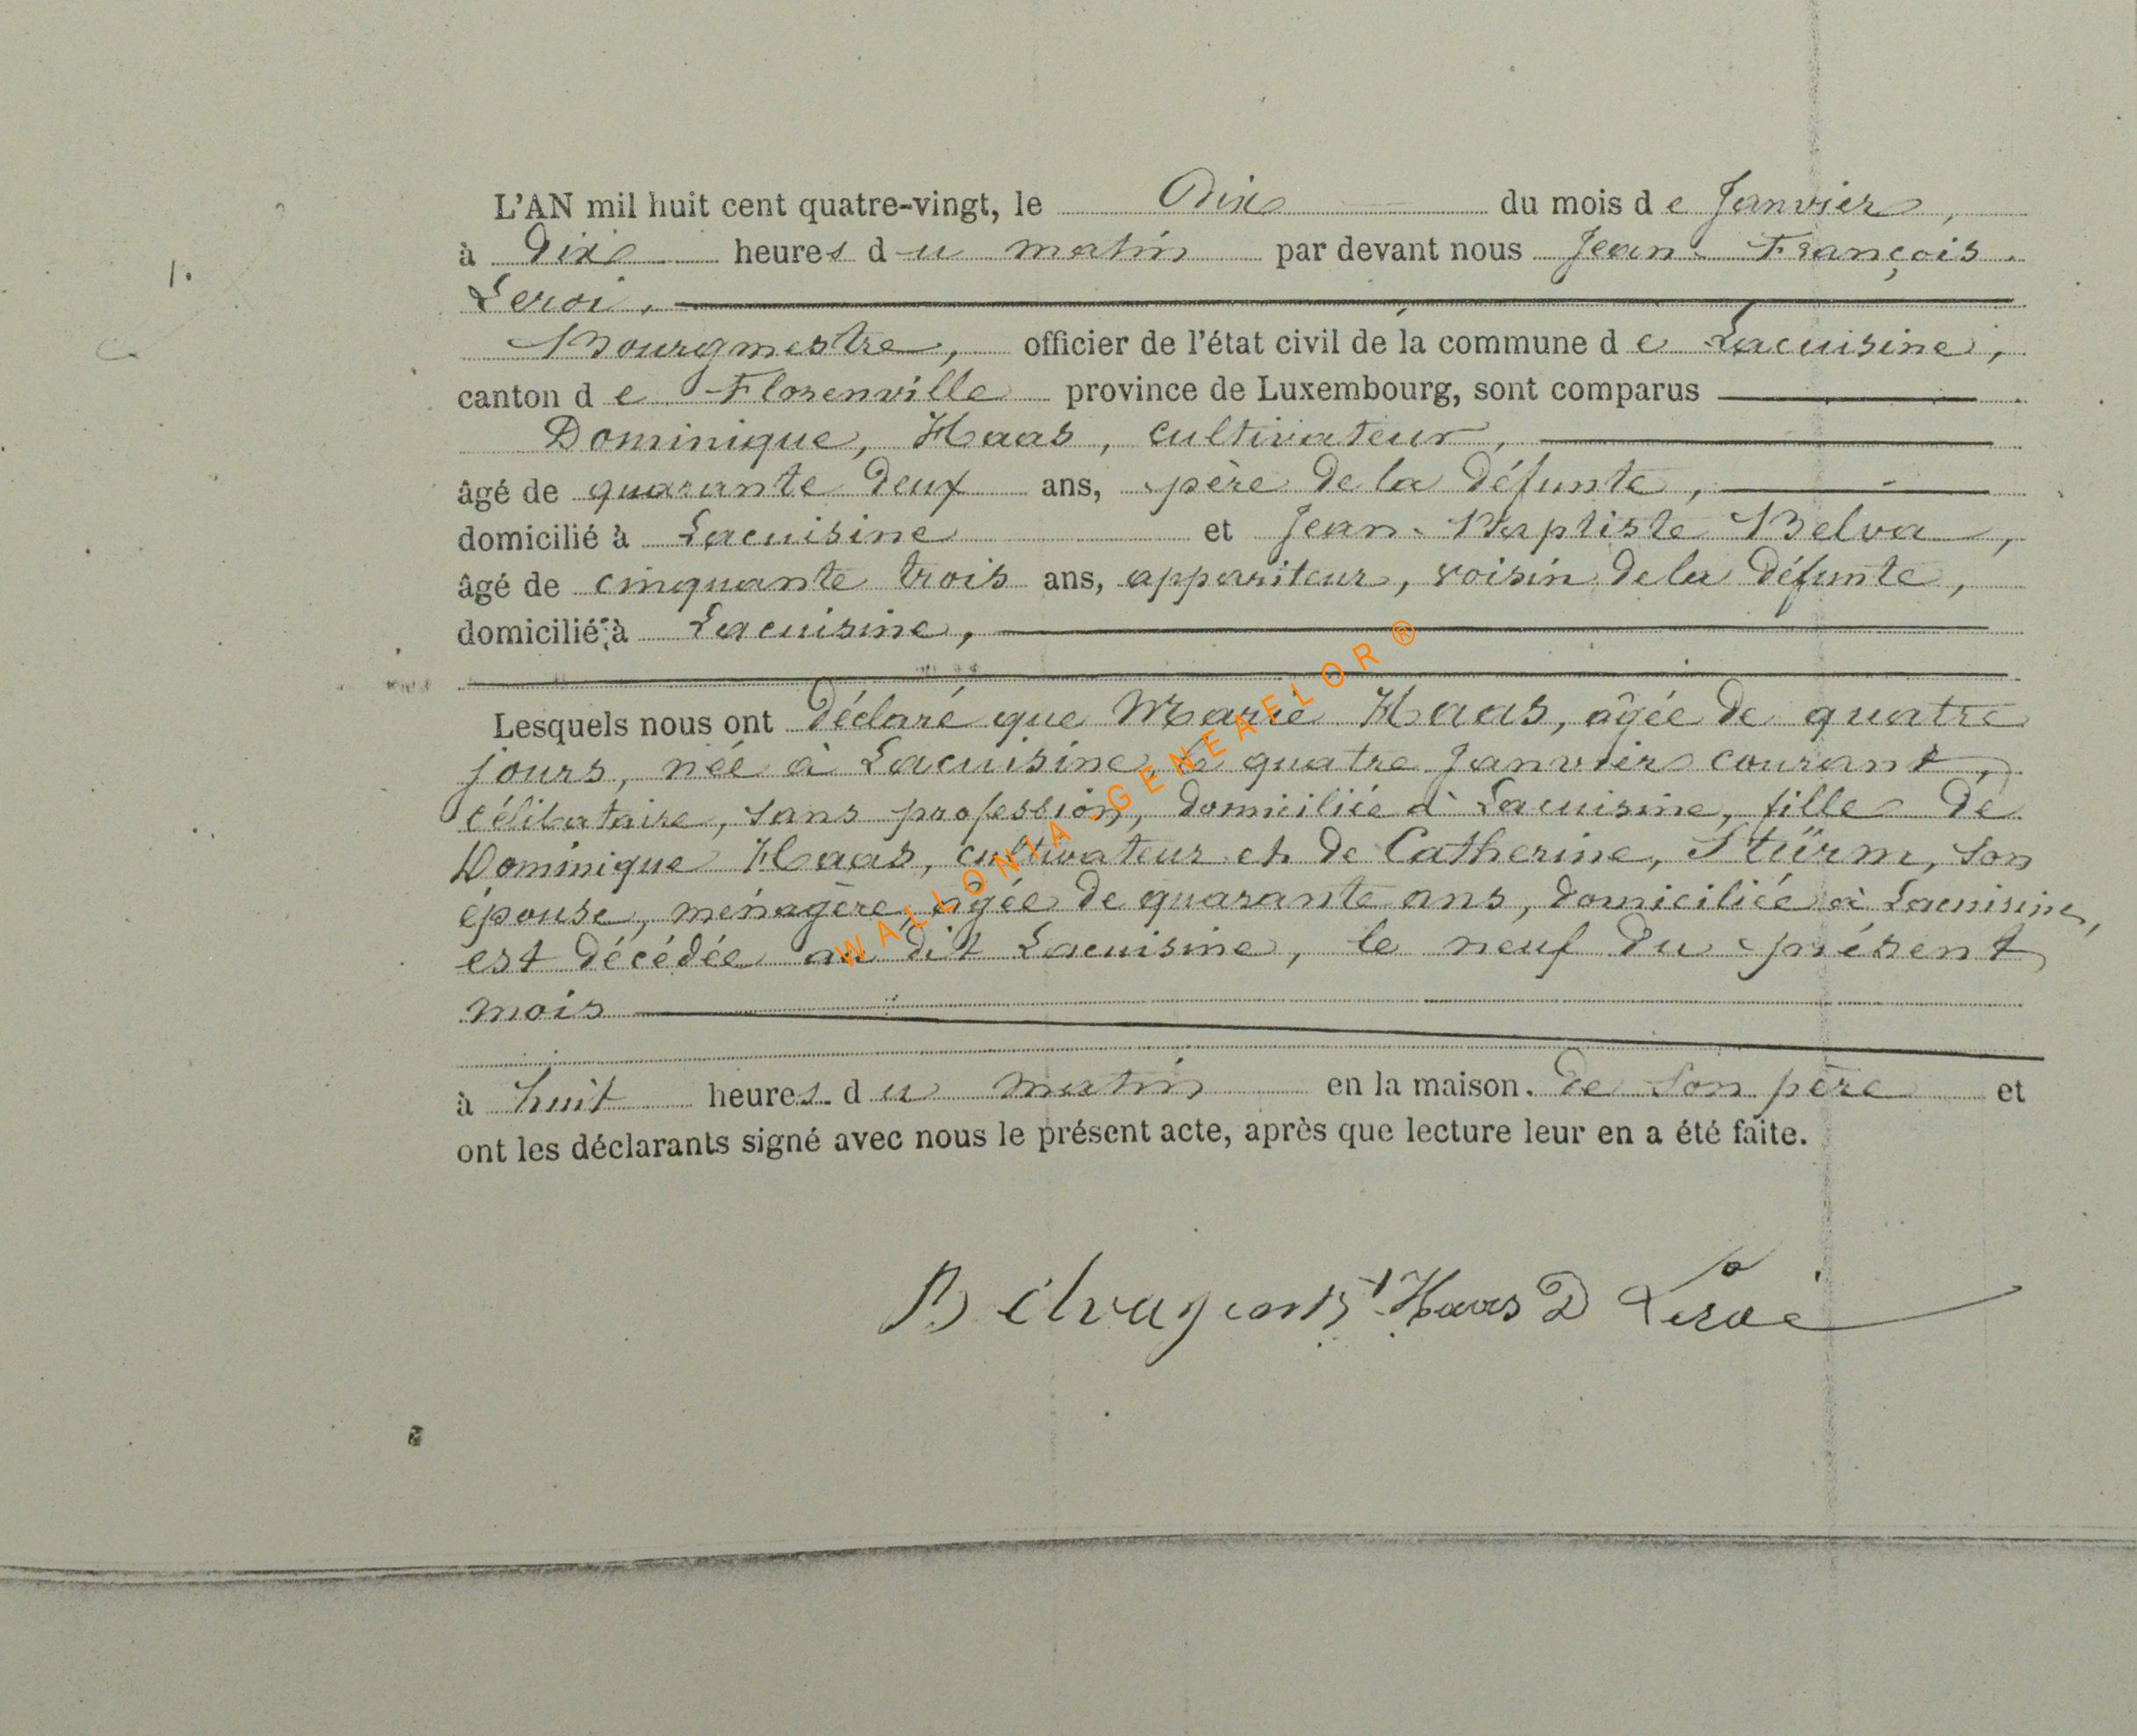 L'AN mil huit cent quatre-vingt, le Dix du mois de Janvier,
1. à Dix heures du matin par devant nous Jean-François
Leroi,
Bourgmestre, officier de l'état civil de la commune de Lacuisine,
canton de Florenville province de Luxembourg, sont comparus
Dominique, Haas, cultivateur,
âgé de quarante Deux ans, père de la Défunte,
domicilié à Lacuisine et Jean-Baptiste Belva,
âgé de cinquante trois ans, appariteur, voisin de la Défunte,
domicilié à Lacuisine,
Lesquels nous ont Déclaré que Marie Haas, âgée de quatre
jours, née à Lacuisine, le quatre Janvier courant,
célibataire, sans profession, domiciliée à Lacuisine, fille de
Dominique Haas, cultivateur et de Catherine, Stürm, son
épouse, ménagère, âgée de quarante ans, domiciliée à Lacuisine,
est décédée au dit Lacuisine, le neuf du présent
mois
à huit heures du matin en la maison de son père et
ont les déclarants signé avec nous le présent acte, après que lecture leur en a été faite.
Haas D Leroi
WALLONIA - GENEAELOR ®